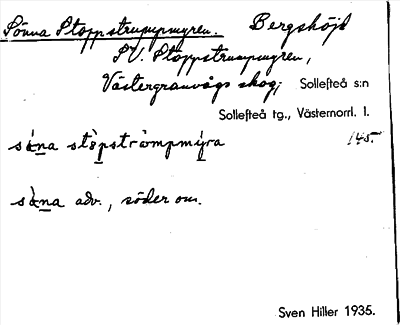 Sönna Stoppstrumpmyren. Bergshöjd
SV. Stoppstrumpmyren,
Västergranvågs skog, Sollefteå s:n
Sollefteå tg., Västernorrl. l.
sȧna stȧpströmpmýra 145.
sȧna adv., söder om.
Sven Hiller 1935.